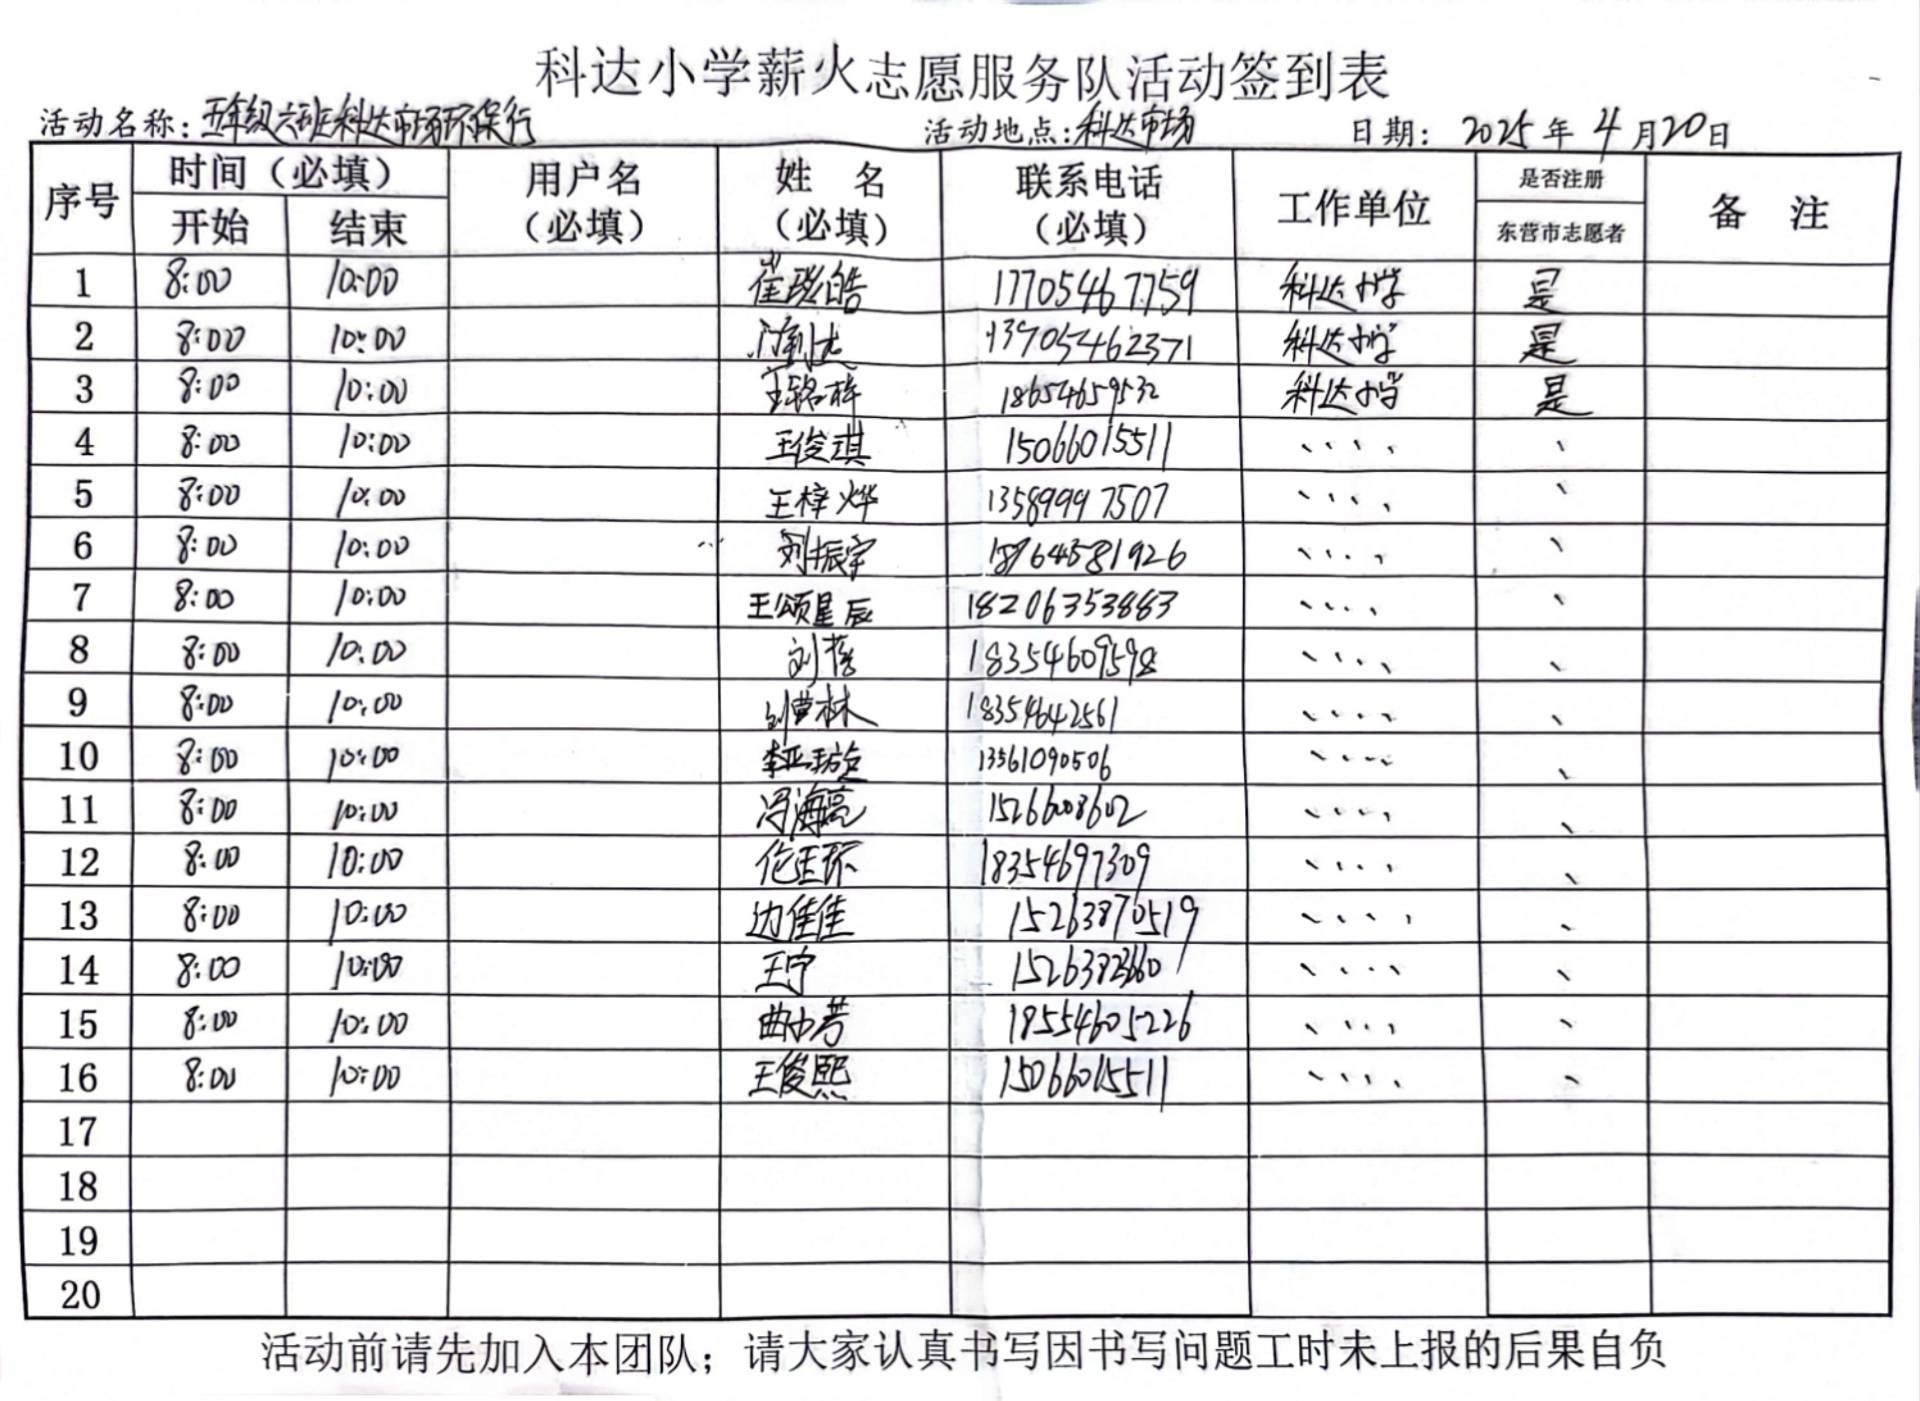 科达小学薪火志愿服务队活动签到表
活动名称：五年级六班科达市场环保行 活动地点：科达市场 日期：2025年4月20日
序号 时间（必填） 用户名（必填） 姓 名（必填） 联系电话（必填） 工作单位 是否注册 备 注
开始 结束 东营市志愿者
1 8:00 10:00 崔 皓 17705467759 科达小学 是
2 8:00 10:00 13705462371 科达小学 是
3 8:00 10:00 梓 18654659532 科达小学 是
4 8:00 10:00 王俊琪 15066015511 、、、、 、
5 8:00 10:00 王梓烨 13589997507 、、、、 、
6 8:00 10:00 刘振宇 18764581926 、、、、 、
7 8:00 10:00 王颂星辰 18206353883 、、、、 、
8 8:00 10:00 刘 18354609598 、、、、 、
9 8:00 10:00 林 18354642561 、、、、 、
10 8:00 10:00 李亚 13561090506 、、、、 、
11 8:00 10:00 冯海亮 15266008602 、、、、 、
12 8:00 10:00 18354697309 、、、、 、
13 8:00 10:00 边佳佳 15263870519 、、、、 、
14 8:00 10:00 王宁 、、、、 、
15 8:00 10:00 曲小芳 18554605226 、、、、 、
16 8:00 10:00 王俊熙 15066015511 、、、、 、
17
18
19
20
活动前请先加入本团队；请大家认真书写因书写问题工时未上报的后果自负